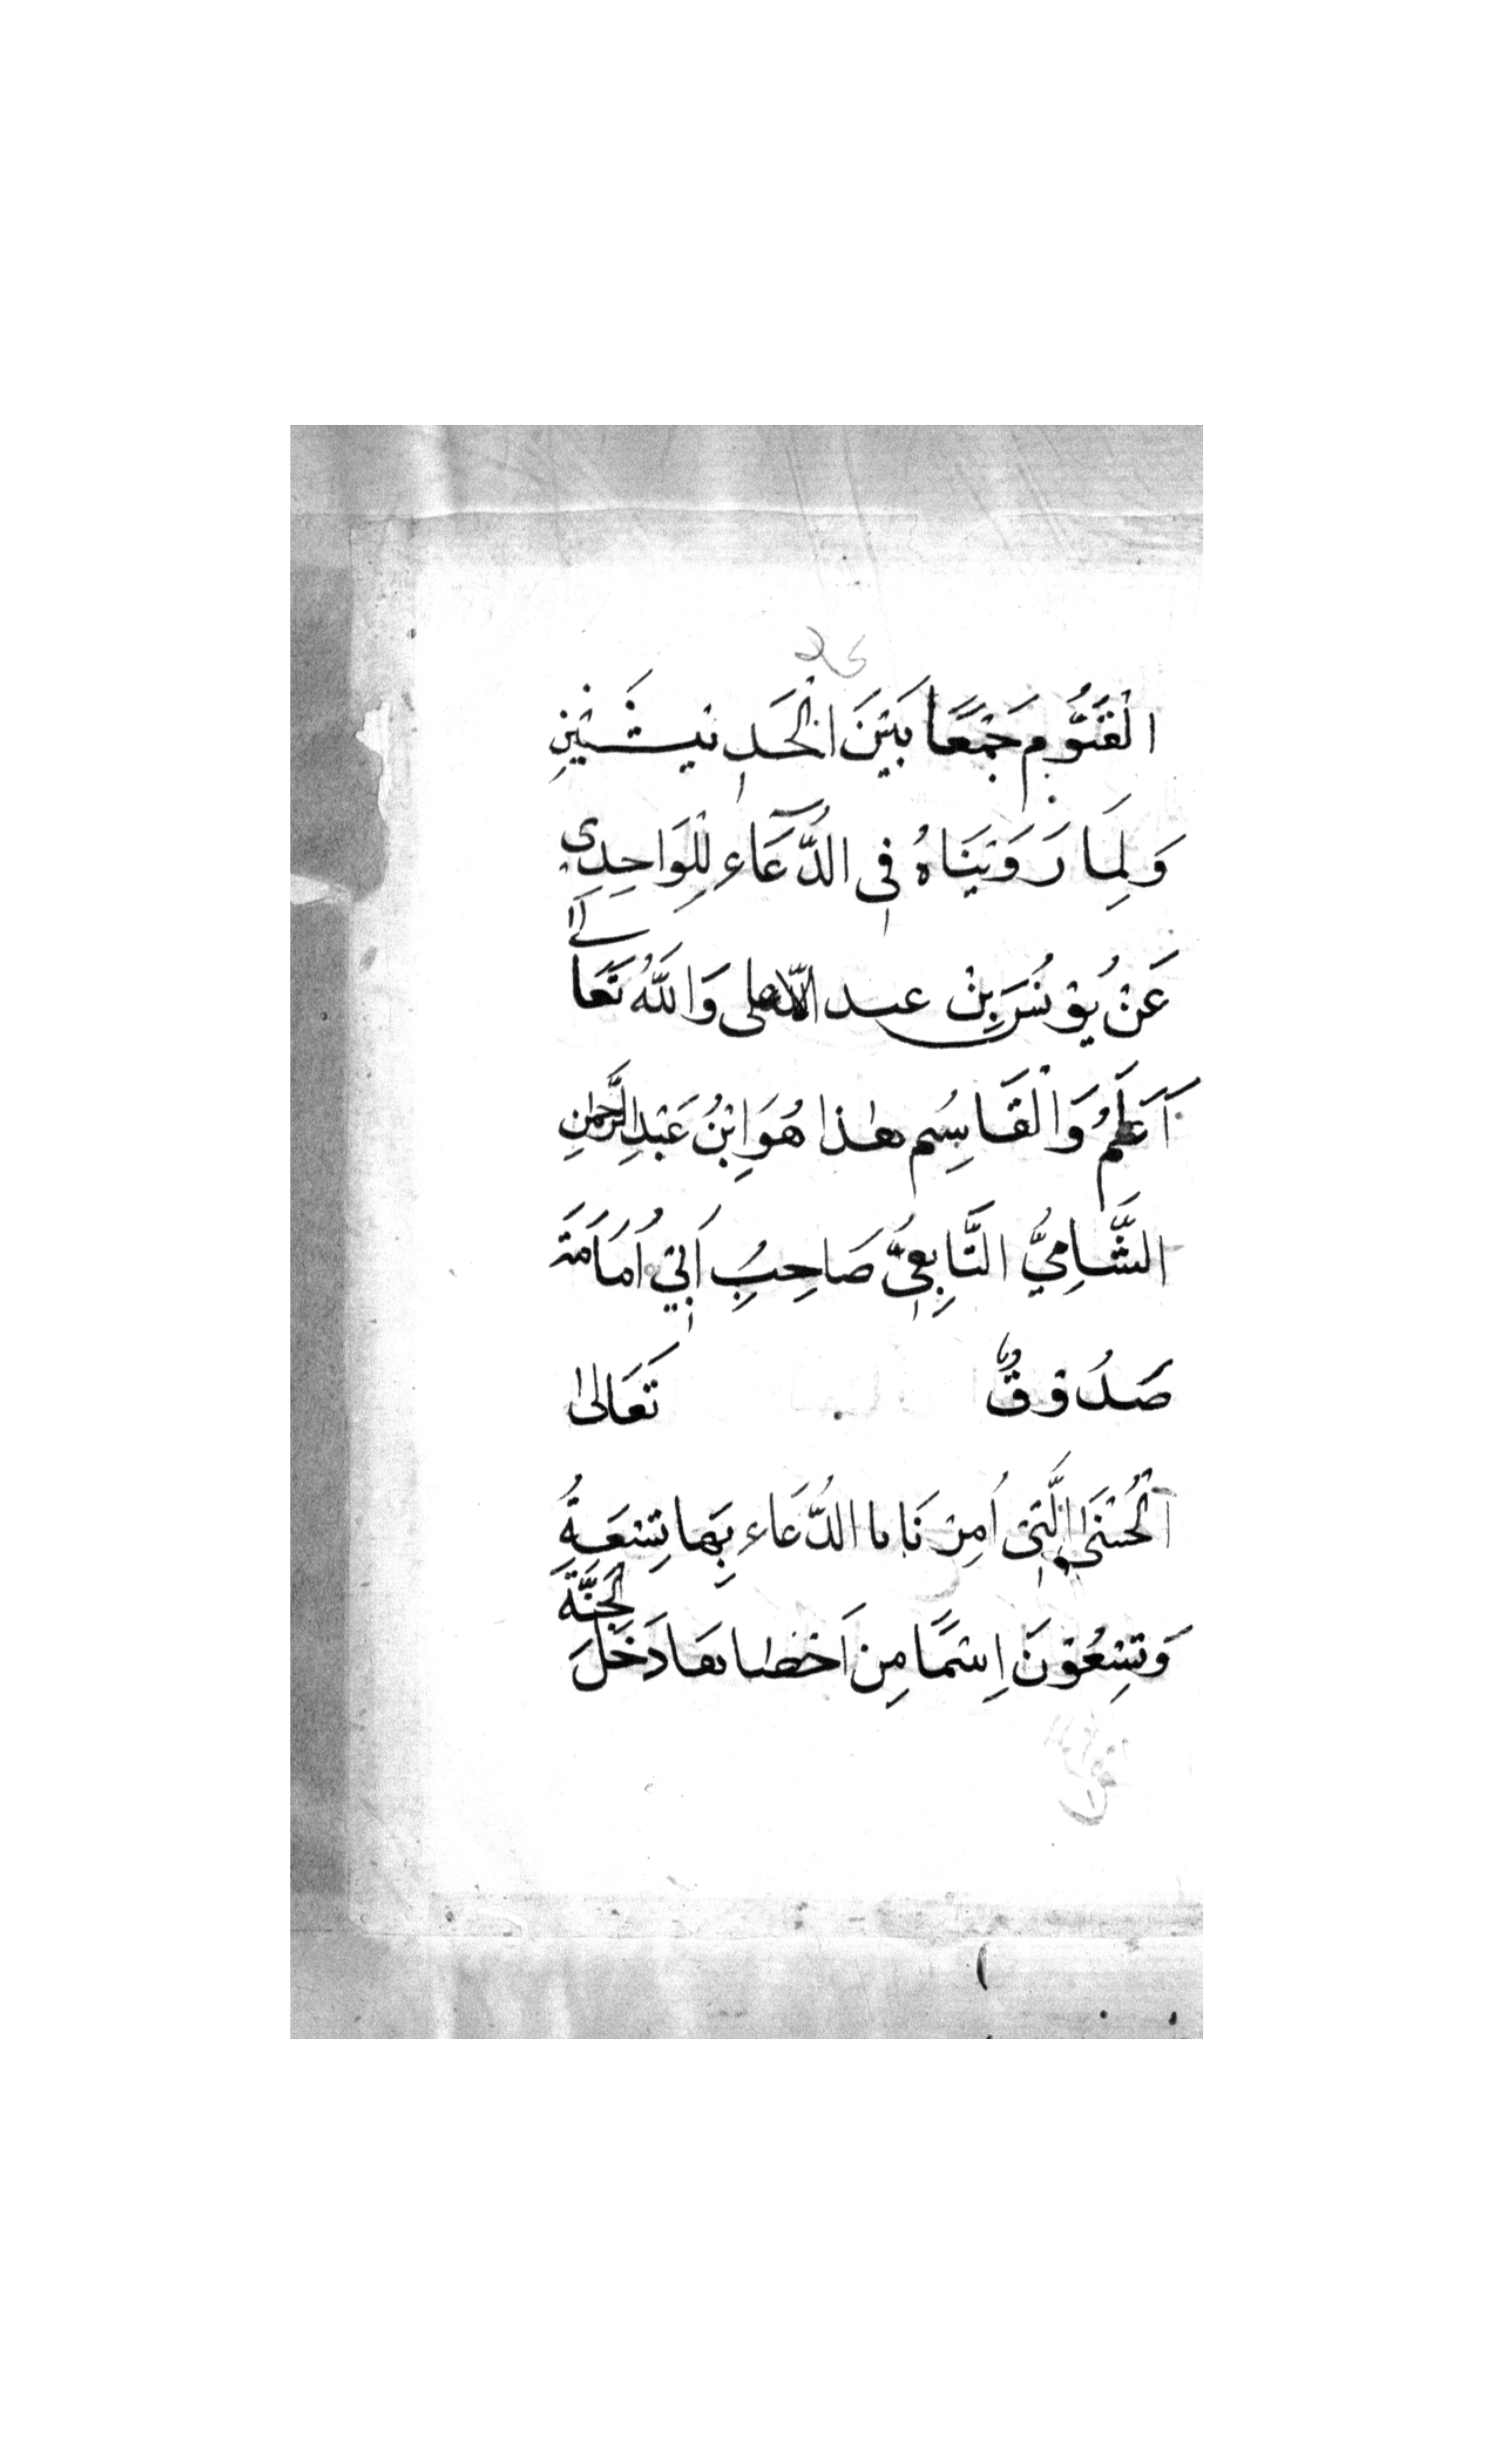 الْقَيُّوْمِ جَمْعًا بَيْنَ الْحَدِيْثَيْنِ
وَلِمَا رَوَيْنَاهُ فِي الدُّعَآءِ لِلْوَاحِدِي
عَنْ يُوْنُسَ بِنْ عبد الاعلى وَاللّٰهُ تَعَالٰى
اَعْلَمُ وَالْقَاسِمِ هٰذَا هُوَ اِبْنُ عَبْدِ الرَّحْمٰنِ
الشَّامِيُّ التَّابِعِيُّ صَاحِبُ اَبِيْ اُمَامَةَ
صَدُوْقٌ تَعَالٰى
الْحُسْنٰى الَّتِيْ اُمِرْنَا بِا الدُّعَاءِ بِهَا تِسْعَةُ
وَتِسْعُوْنَ اِسْمًا مِنْ اَحْصَاهَا دَخَلَ الْجَنَّةَ